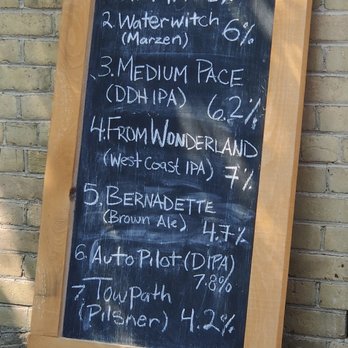 2. Waterwitch 6%
(Marzen)
3. MEDIUM PACE
(DDH IPA) 6.2%
4. FROM WONDERLAND
(WEST COAST IPA) 7%
5. BERNADETTE
(Brown Ale) 4.7%
6. AutoPilot (DIPA)
7.8%
7. Towpath
(Pilsner) 4.2%